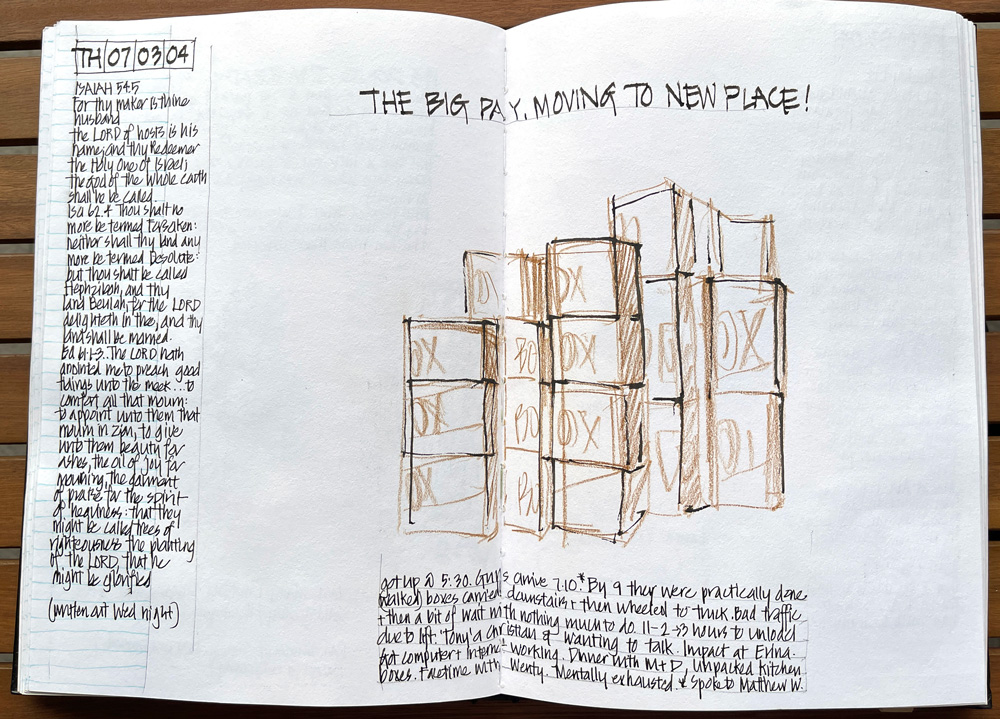 TH 07 03 04
ISAIAH 54.5
For thy maker is thine
husband
the LORD of hosts is his
name; and thy Redeemer
the Holy One of Israel;
the god of the whole earth
shall he be called.
Isa 62.4 Thou shalt no
more be termed Forsaken:
neither shall thy land any
more be termed Desolate:
but thou shalt be called
Hephzibah, and thy
land Beulah, for the LORD
delighteth in thee, and thy
land shall be married.
61.1-3. The LORD hath
anointed me to preach good
tidings unto the meek...to
comfort all that mourn:
to appoint unto them that
mourn in Zion, to give
unto them beauty for
ashes, the oil of joy for
mourning, the garment
of praise for the spirit
of heaviness: that they
might be called trees of
righteousness the planting
of the LORD, that he
might be glorified
(written out Wed night)
THE BIG DAY, MOVING TO NEW PLACE!
OX
BO
OX
OX
OX
BO
OX
OX
got up @ 5:30. Guys arrive 7:10* By 9 they were practically done
walked boxes carried downstairs + then wheeled to truck. Bad traffic
+ then a bit of wait with nothing much to do. 11-2 → 3 hours to unload
due to lift. 'Tony' a Christian & wanting to talk. Impact at Erina.
Got computer + internet working. Dinner with M+D, unpacked kitchen
boxes. Facetime with Wenty. Mentally exhausted. * Spoke to Matthew W.